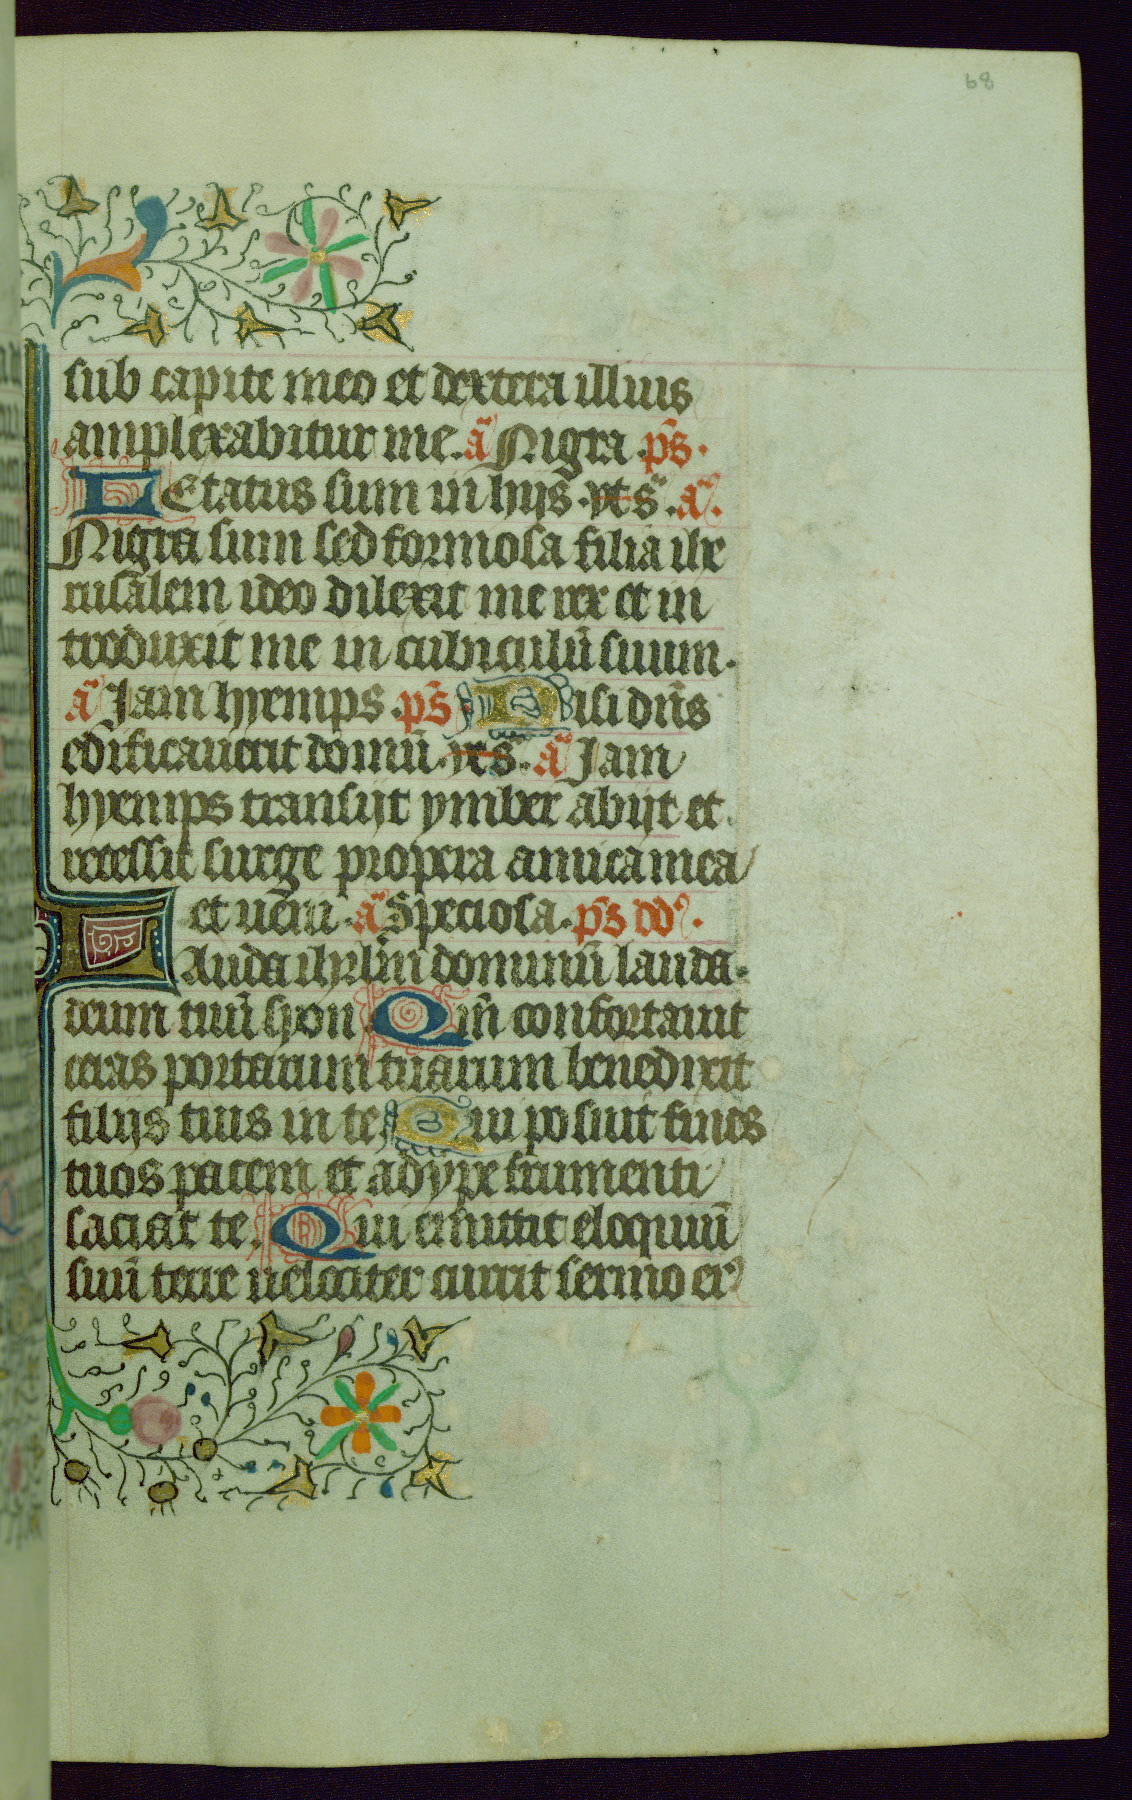 68
sub capite meo et dextera illius
amplexabitur me. añ Nigra. ps̄.
LEtatus sum in hijs. xt̄s. añ.
Nigra sum sed formosa filia ihe
rusalem ideo dilexit me rex et in
troduxit me in cubiculū suum.
añ Jam hyemps. ps̄ Nisi dn̄s
edificauerit domū. añ Jam
hyemps transijt ymber abijt et
recessit surge propera amica mea
et ueni añ Speciosa. ps̄ dd̕.
Lauda ihrl̄m dominū lauda
deum tuū syon Qm̄ confortauit
ceras portarum tuarum benedixit
filijs tuis in te Qui posuit fines
tuos pacem et adype frumenti
saciat te. Qui emittit eloquiū
suū terre uelociter currit sermo ei⁹